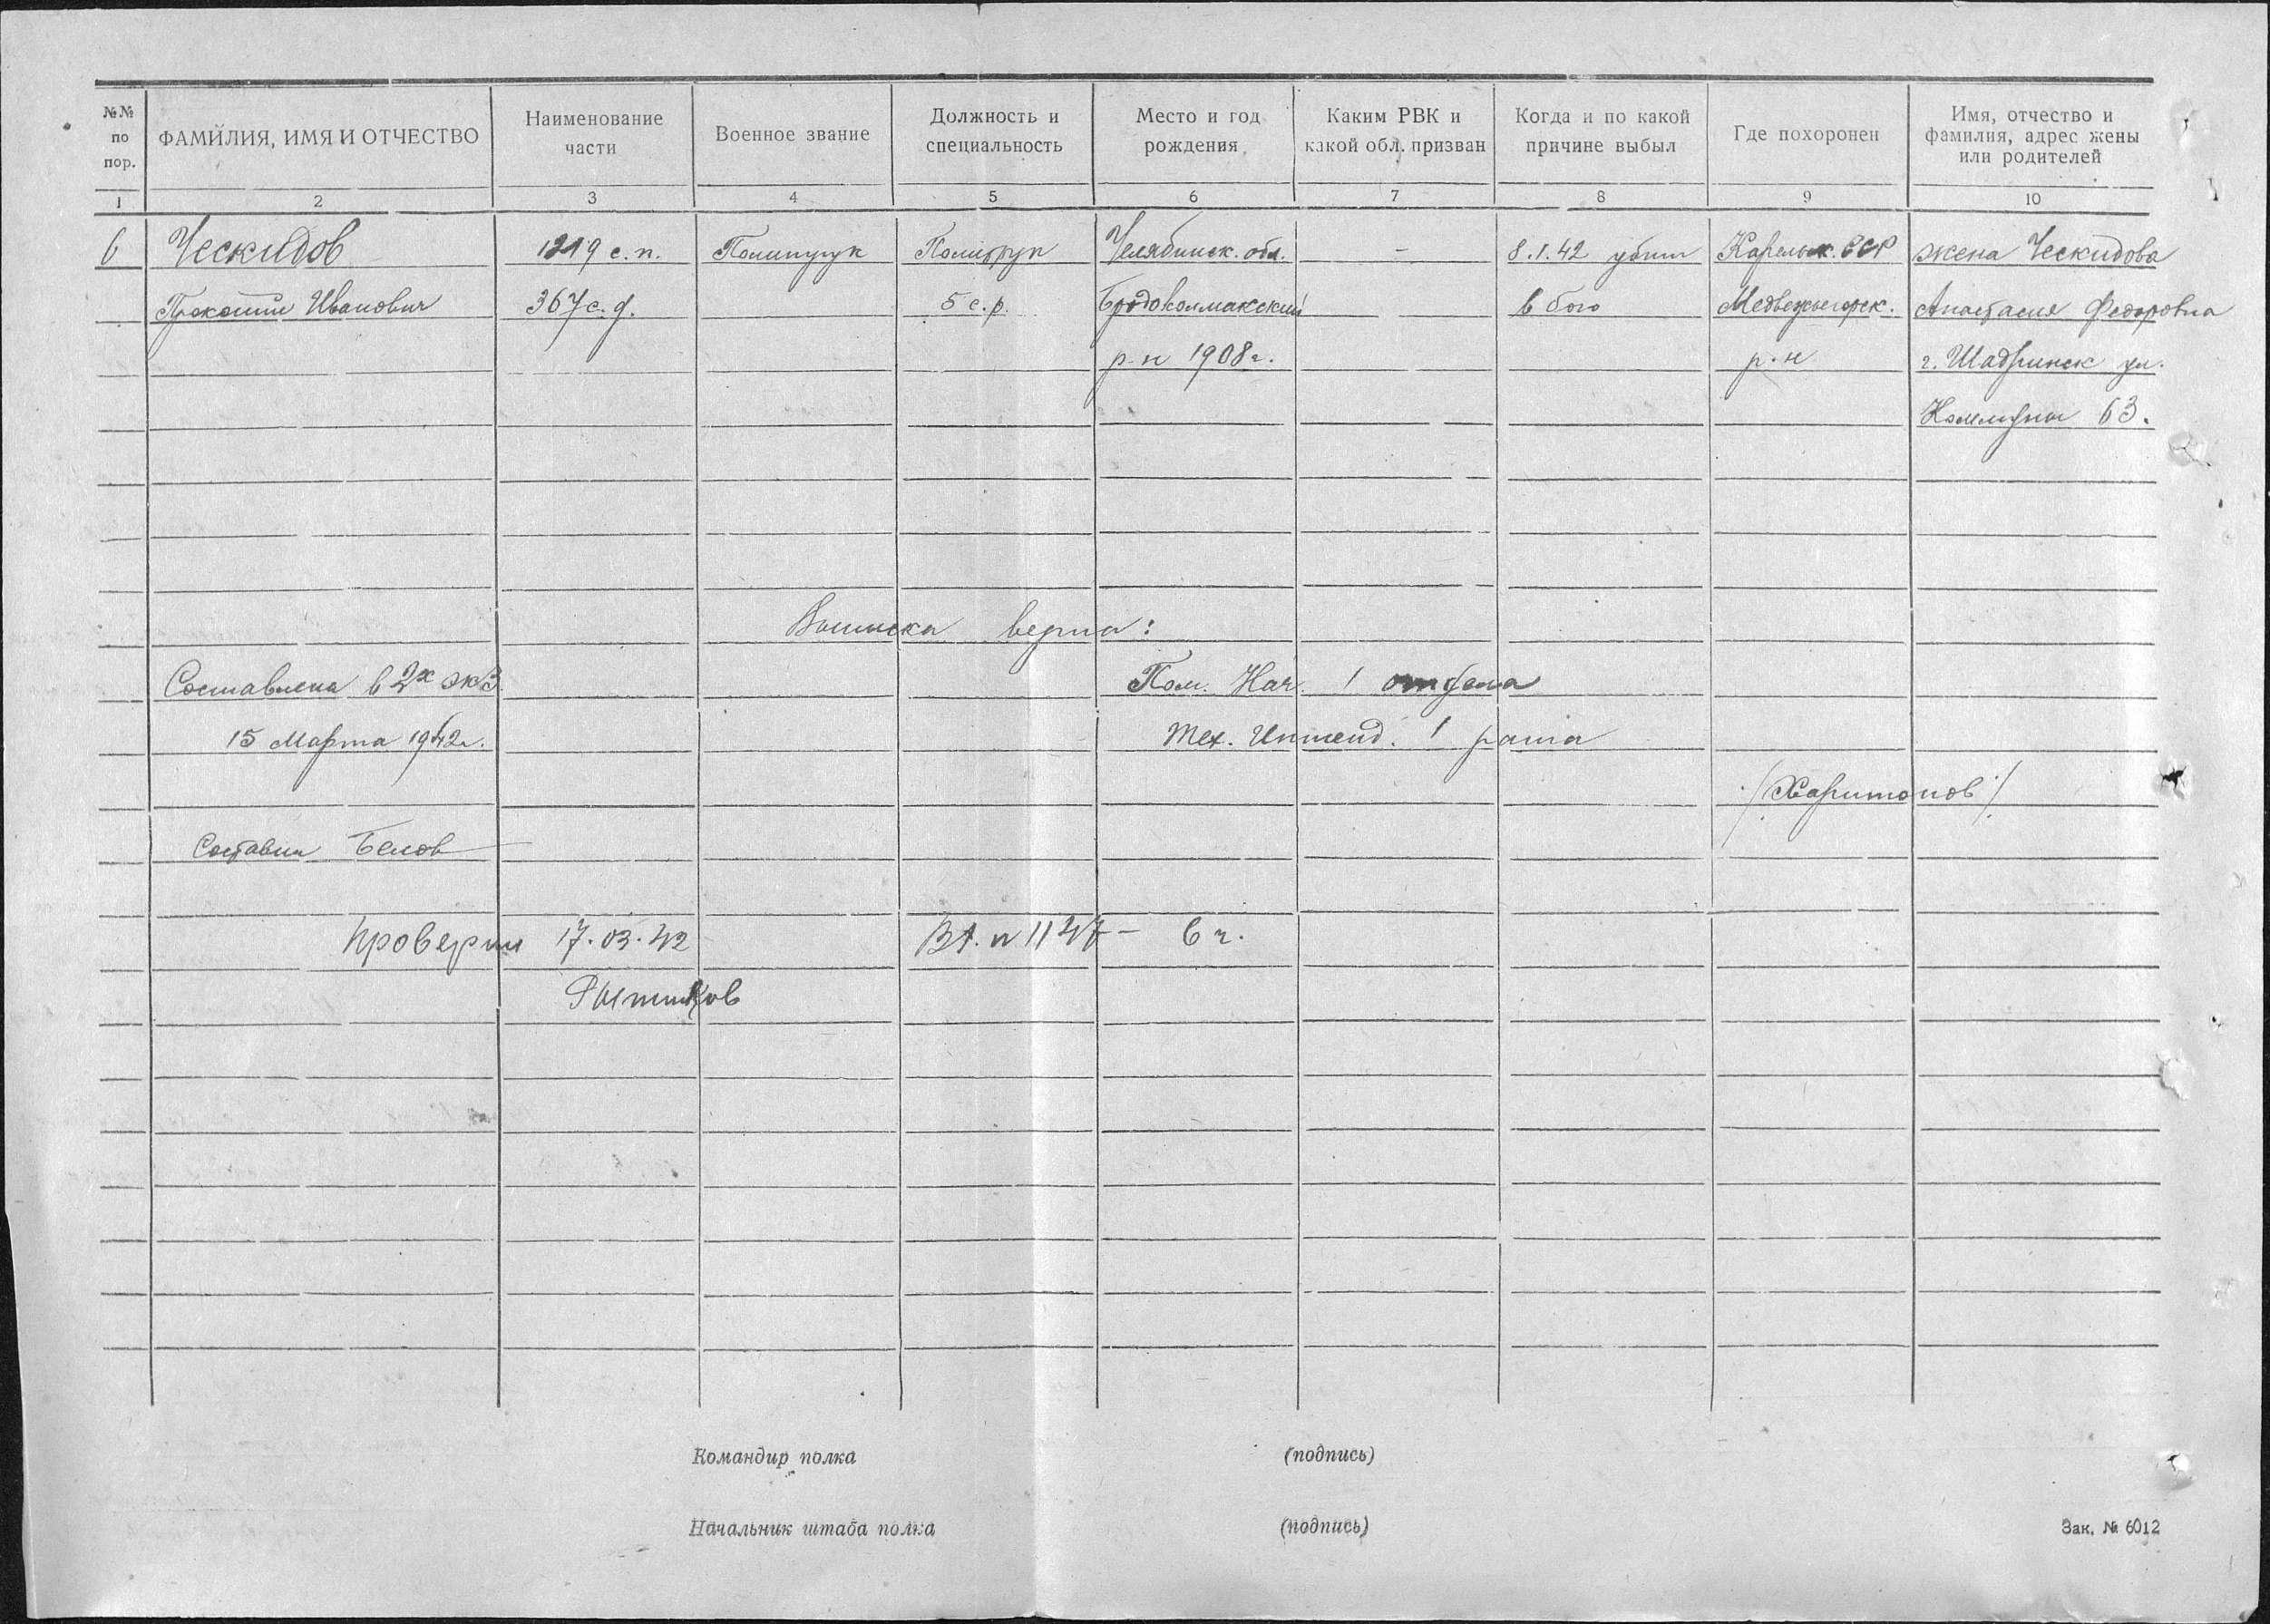 №№ по пор.
ФАМИЛИЯ, ИМЯ И ОТЧЕСТВО
Наименование части
Военное звание
Должность и специальность
Место и год рождения
Каким РВК и какой обл. призван
Когда и по какой причине выбыл
Где похоронен
Имя, отчество и фамилия, адрес жены или родителей
1 2 3 4 5 6 7 8 9 10
6 Ческидов 1219 с.п. Политрук Политрук Челябинск. обл. - 8.1.42 убит Карельск. ССР жена Ческидова
Прокопий Иванович 367 с.д. 5 с.р. Бродоколмакский в бою Медвежьегорск. Анастасия Федоровна
р-н 1908 г. р-н г. Шадринск ул.
Коммуны 63.
Выписка верна:
Составлена в 2х экз. Пом. Нач. 1 отдела
15 Марта 1942 г. Тех. Интенд. 1 ранга
/Харитонов/
Составил Белов
Проверил 17.03.42 Вх. №1147 - 6 ч.
Командир полка (подпись)
Начальник штаба полка (подпись)
Зак. № 6012